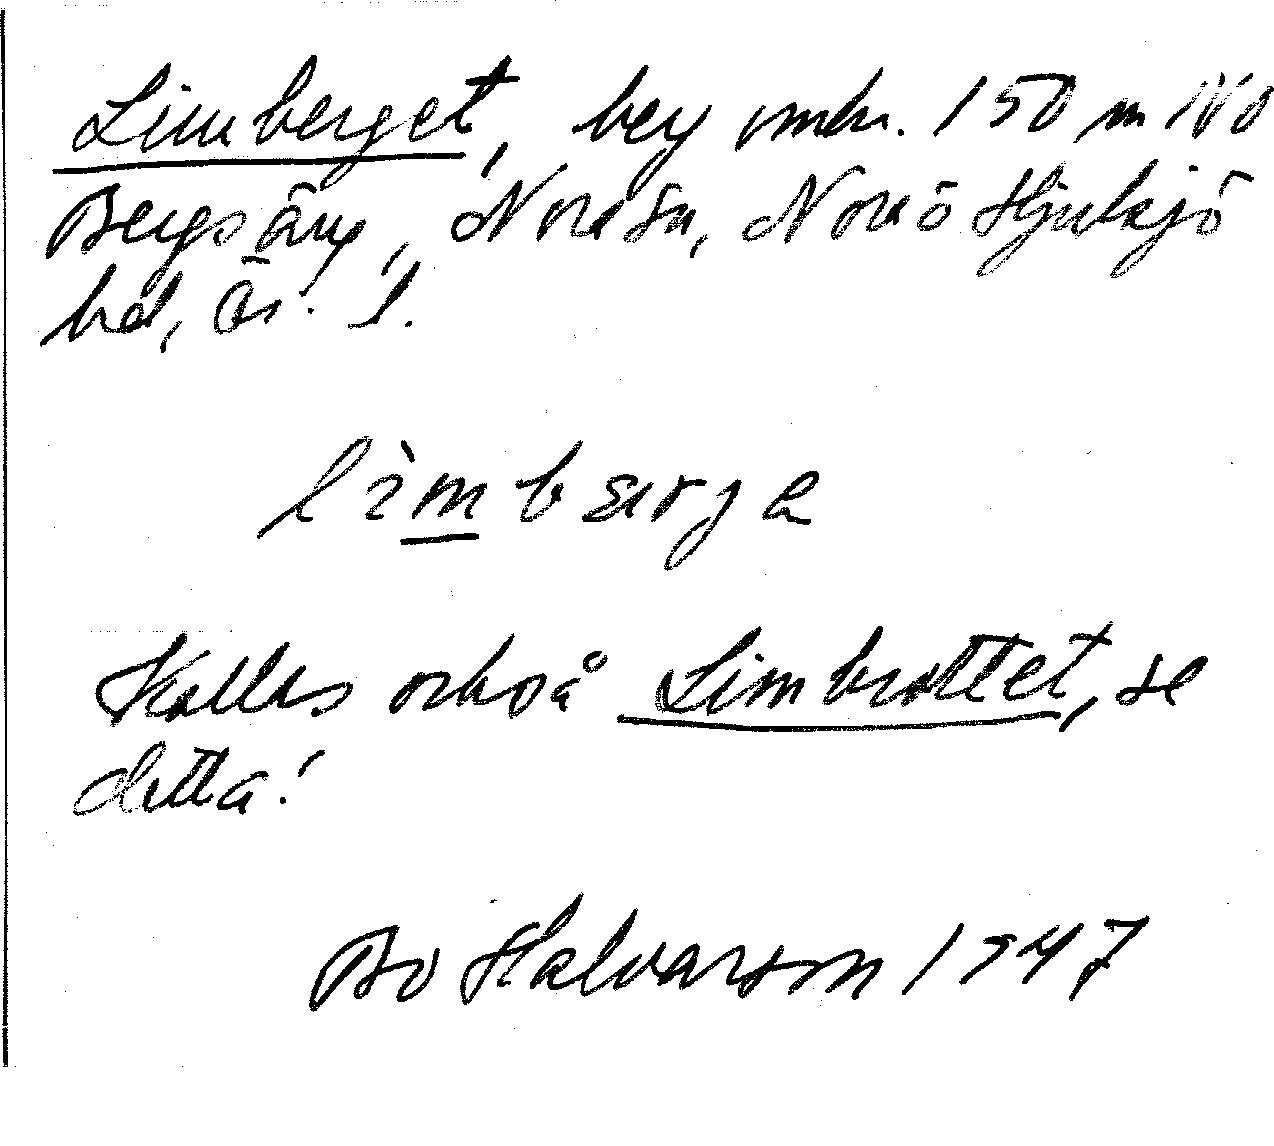 Limberget, berg omkr. 150 m NV o
Bergsäng, Norra Su, Norrö Hjulsjö
bd, Ör. l.
lìmbærge
Kallas också Limbrottet, se
detta!
Bo Halvarson 1947